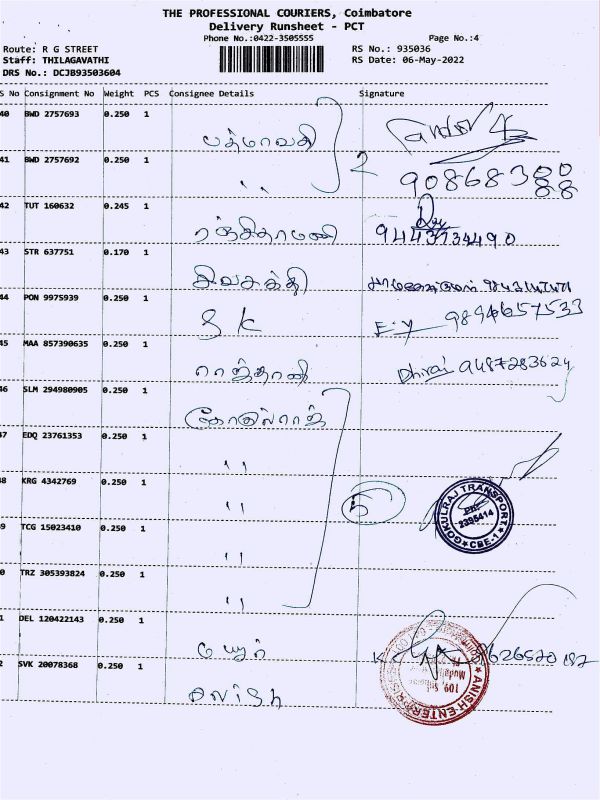 THE PROFESSIONAL COURIERS, Coimbatore
Delivery Runsheet - PCT
Phone No.:0422-3505555 Page No.:4
Route: R G STREET RS No.: 935036
Staff: THILAGAVATHI RS Date: 06-May-2022
DRS No.: DCJB93503604
S No Consignment No Weight PCS Consignee Details Signature
40 BWD 2757693 0.250 1 பத்மாவதி
41 BWD 2757692 0.250 1 " 2 90868380
88
42 TUT 160632 0.245 1 ரஞ்சிதாமணி
43 STR 637751 0.170 1 சிவசக்தி
44 PON 9975939 0.250 1 S K 9894657533
45 MAA 857390635 0.250 1 ராஜ்தானி Dhiraj 9487283624
46 SLM 294980905 0.250 1 கோகுல்ராஜ்
47 EDQ 23761353 0.250 1 "
48 KRG 4342769 0.250 1 " 5
GOKULRAJ TRANSPORT
2395414
CBE-1
9 TCG 15023410 0.250 1 "
0 TRZ 305393824 0.250 1 "
1 DEL 120422143 0.250 1 மயூர்
2 SVK 20078368 0.250 1 அனிஷ்
ANISH ENTERPRISES
109,